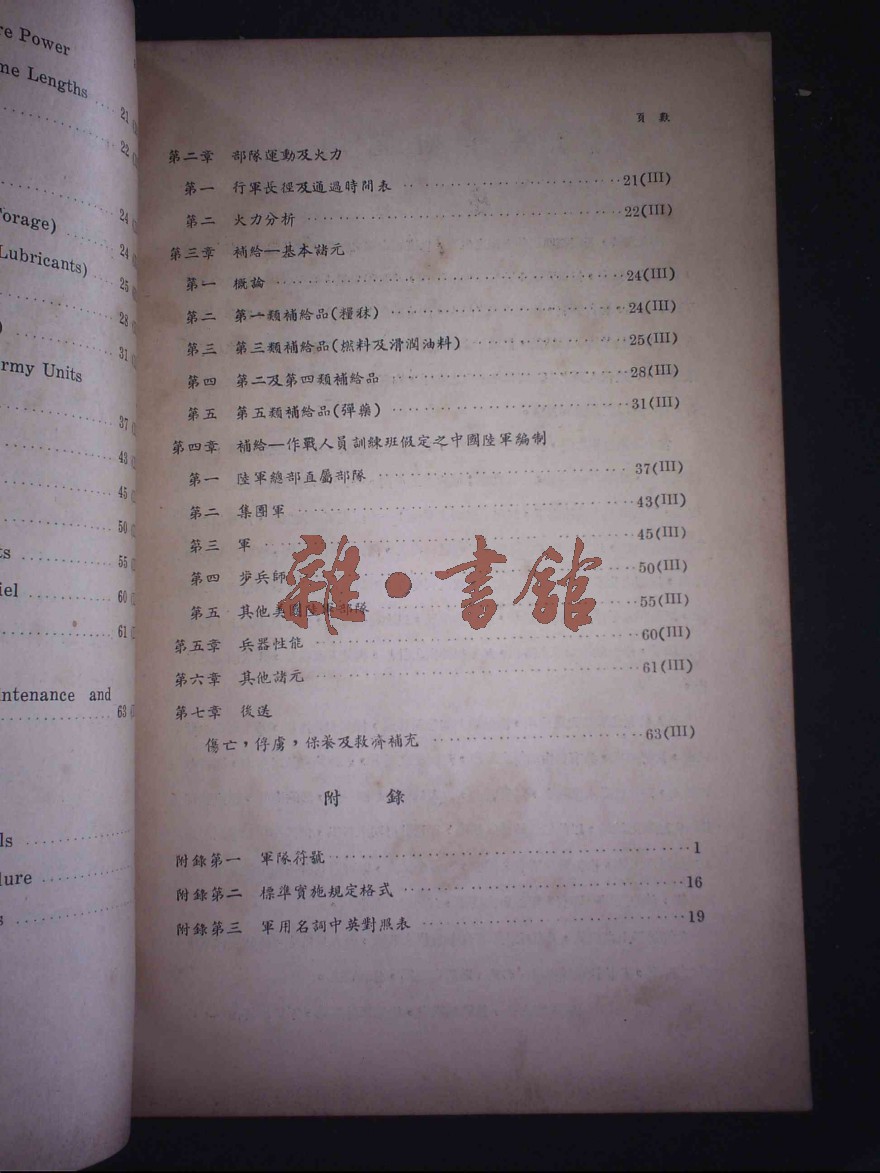 re Power
me Lengths ···· 21
22
24
Forage) ···· 24
Lubricants) ···· 25
28
) ···· 31
rmy Units
37
43
45
50
ts ···· 55
iel ···· 60
61
ntenance and
63
ls ····
dure ····
s ····
頁數
第二章 部隊運動及火力
第一 行軍長徑及通過時間表 ···· 21(III)
第二 火力分析 ···· 22(III)
第三章 補給—基本諸元
第一 概論 ···· 24(III)
第二 第一類補給品(糧秣) ···· 24(III)
第三 第三類補給品(燃料及滑潤油料) ···· 25(III)
第四 第二及第四類補給品 ···· 28(III)
第五 第五類補給品(彈藥) ···· 31(III)
第四章 補給—作戰人員訓練班假定之中國陸軍編制
第一 陸軍總部直屬部隊 ···· 37(III)
第二 集團軍 ···· 43(III)
第三 軍 ···· 45(III)
第四 步兵師 ···· 50(III)
第五 其他美國陸軍部隊 ···· 55(III)
第五章 兵器性能 ···· 60(III)
第六章 其他諸元 ···· 61(III)
第七章 後送
傷亡,俘虜,保養及救濟補充 ···· 63(III)
附錄
附錄第一 軍隊符號 ···· 1
附錄第二 標準實施規定格式 ···· 16
附錄第三 軍用名詞中英對照表 ···· 19
雜·書館